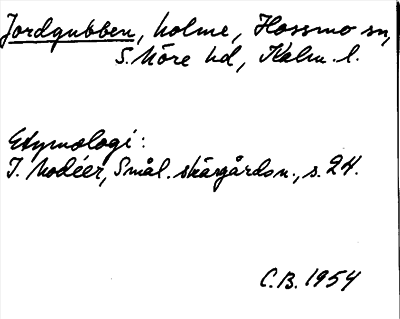 Jordgubben, holme, Hossmo sn,
S. Möre hd, Kalm. l.
Etymologi:
I. Modéer, Smål. skärgårdsn., s. 24.
C.B. 1954